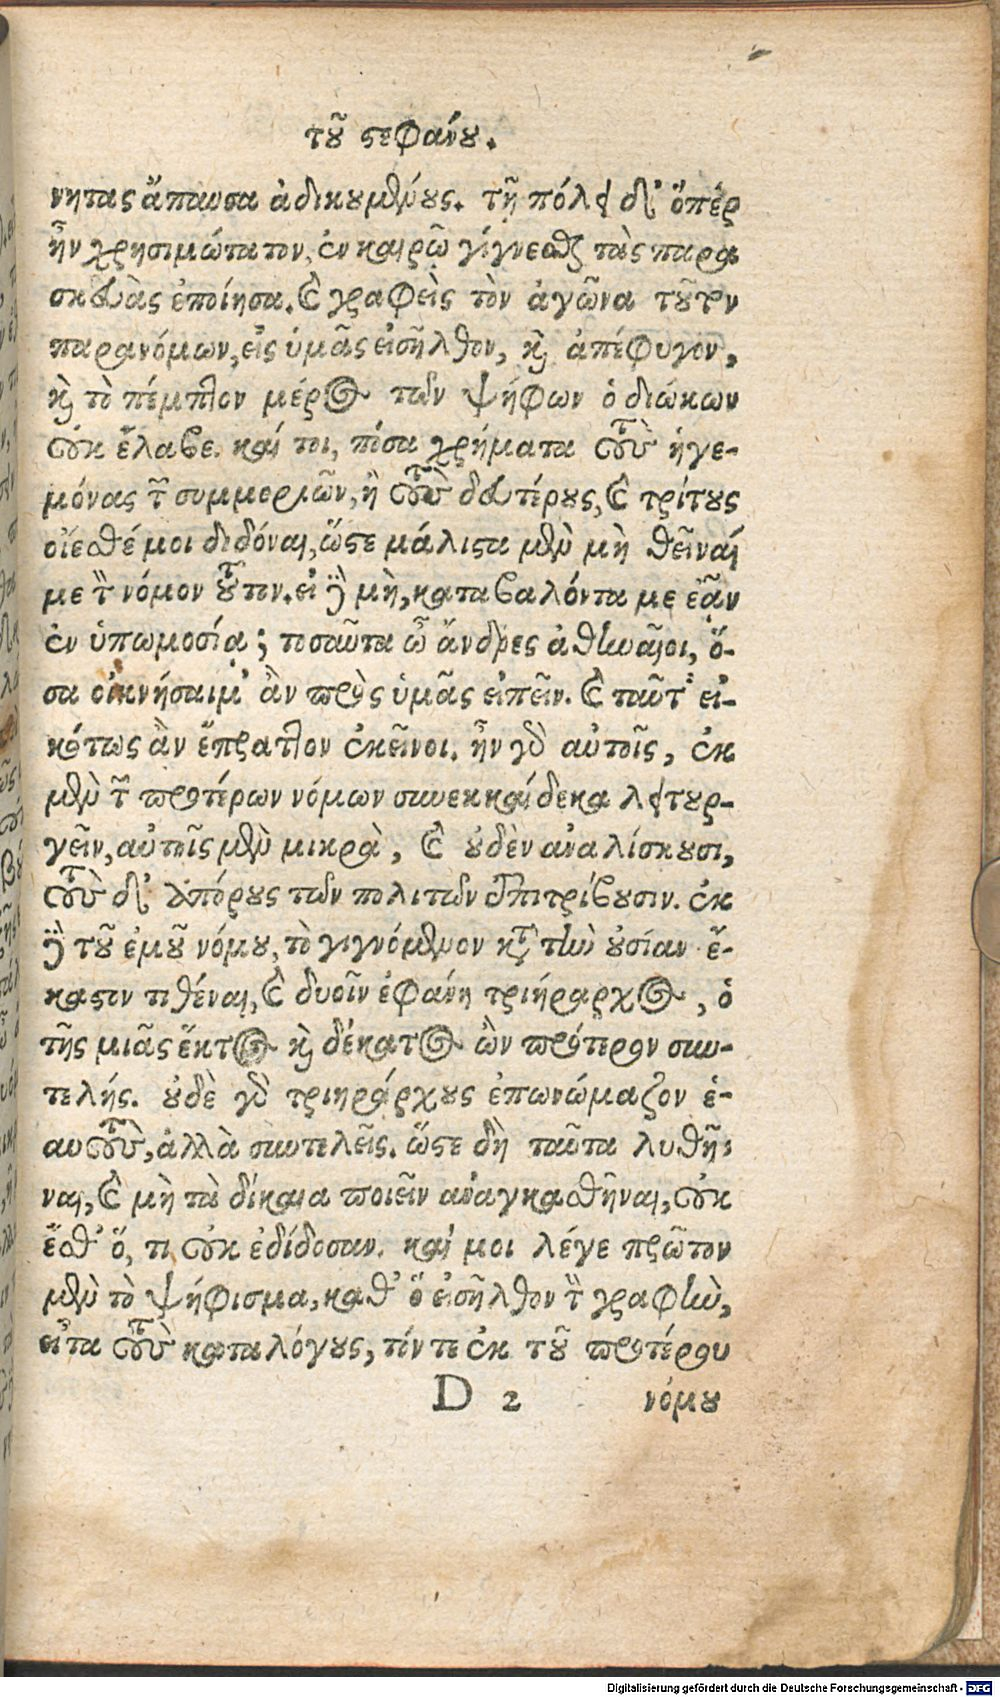 τοῦ στεφάνου.
νητας ἔπαυσα ἀδικουμένους. τῇ πόλει δ' ὅπερ
ἦν χρησιμώτατον, ἐν καιρῷ γίγνεσθαι τὰς παρα
σκευὰς ἐποίησα. καὶ γραφεὶς τὸν ἀγῶνα τοῦτον
παρανόμων, εἰς ὑμᾶς εἰσῆλθον, καὶ ἀπέφυγον,
καὶ τὸ πέμπτον μέρος τῶν ψήφων ὁ διώκων
οὐκ ἔλαβε. καί τοι, πόσα χρήματα τοὺς ἡγε-
μόνας τῶν συμμοριῶν, ἢ τοὺς δευτέρους, καὶ τρίτους
οἴεσθέ μοι διδόναι, ὥστε μάλιστα μὲν μὴ θεῖναί
με τὸν νόμον τοῦτον. εἰ δὲ μὴ, καταβαλόντα με ἐᾷν
ἐν ὑπωμοσίᾳ; τοσαῦτα ὦ ἄνδρες ἀθηναῖοι, ὅ-
σα ὀκνήσαιμ' ἂν πρὸς ὑμᾶς εἰπεῖν. καὶ ταῦτ' εἰ-
κότως ἂν ἔπραττον ἐκεῖνοι. ἦν γὰρ αὐτοῖς, ἐκ
μὲν τῶν προτέρων νόμων συνεκκαίδεκα λειτουρ-
γεῖν, αὐτοῖς μὲν μικρὰ, καὶ οὐδὲν ἀναλίσκουσι,
τοὺς δ' ἀπόρους τῶν πολιτῶν ἐπιτρίβουσιν. ἐκ
δὲ τοῦ ἐμοῦ νόμου, τὸ γιγνόμενον κατὰ τὴν οὐσίαν ἕ-
καστον τιθέναι, καὶ δυοῖν ἐφάνη τριήραρχος, ὁ
τῆς μιᾶς ἕκτος καὶ δέκατος ὢν πρότερον συν-
τελής. οὐδὲ γὰρ τριηράρχους ἐπωνώμαζον ἑ-
αυτοὺς, ἀλλὰ συντελεῖς. ὥστε δὴ ταῦτα λυθῆ-
ναι, καὶ μὴ τὰ δίκαια ποιεῖν ἀναγκασθῆναι, οὐκ
ἔσθ' ὅ, τι οὐκ ἐδίδοσαν. καί μοι λέγε πρῶτον
μὲν τὸ ψήφισμα, καθ' ὃ εἰσῆλθον τὴν γραφὴν,
εἶτα τοὺς καταλόγους, τόν τε ἐκ τοῦ προτέρου
D 2 νόμου
Digitalisierung gefördert durch die Deutsche Forschungsgemeinschaft - DFG